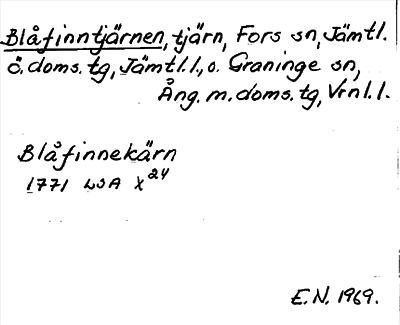 Blåfinntjärnen, tjärn, Fors sn, Jämtl.
ö. doms. tg, Jämtl. l., o. Graninge sn,
Ång. m. doms. tg, Vrnl. l.
Blåfinnekärn
1771 LSA X24
E.N. 1969.